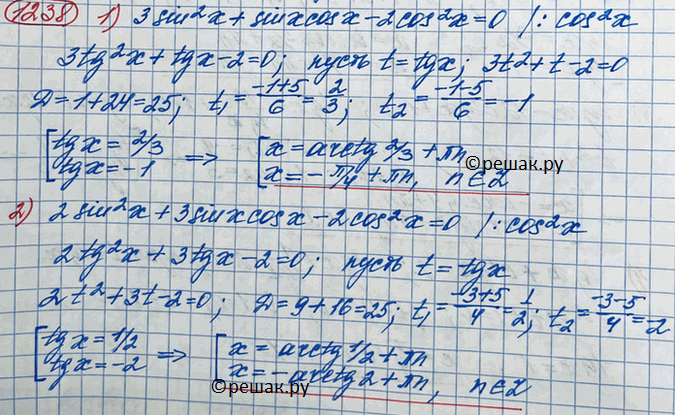 1238 1) 3sin²x + sinxcosx - 2cos²x = 0 /: cos²x
3tg²x + tgx - 2 = 0; пусть t = tgx; 3t² + t - 2 = 0
D = 1 + 24 = 25; t₁ = (-1+5)/6 = 2/3; t₂ = (-1-5)/6 = -1
[tgx = 2/3 => [x = arctg 2/3 + πn
[tgx = -1 [x = -π/4 + πn, n∈Z
©решак.ру
2) 2sin²x + 3sinxcosx - 2cos²x = 0 /: cos²x
2tg²x + 3tgx - 2 = 0; пусть t = tgx
2t² + 3t - 2 = 0; D = 9 + 16 = 25; t₁ = (-3+5)/4 = 1/2; t₂ = (-3-5)/4 = -2
[tgx = 1/2 => [x = arctg 1/2 + πn
[tgx = -2 [x = -arctg2 + πn, n∈Z
©решак.ру